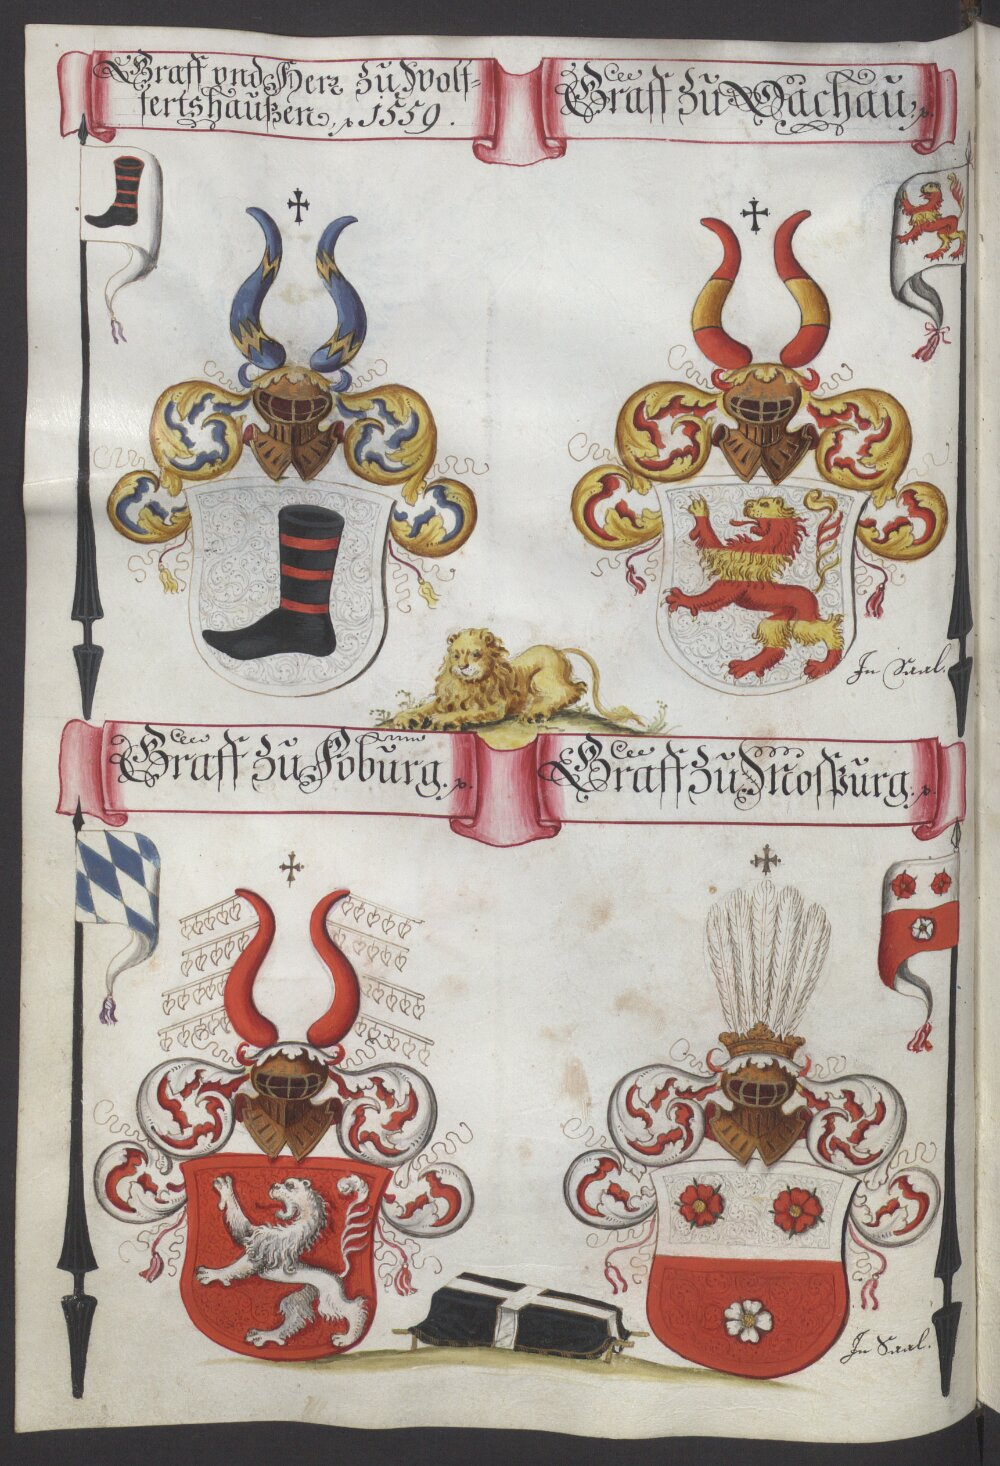 Graff vnd Herr zu Wolf-
fertshaußen, 1559.
Graff zu Dachau,
In Saal.
Graff zu Foburg.
Graff zu Mosburg.
In Saal.